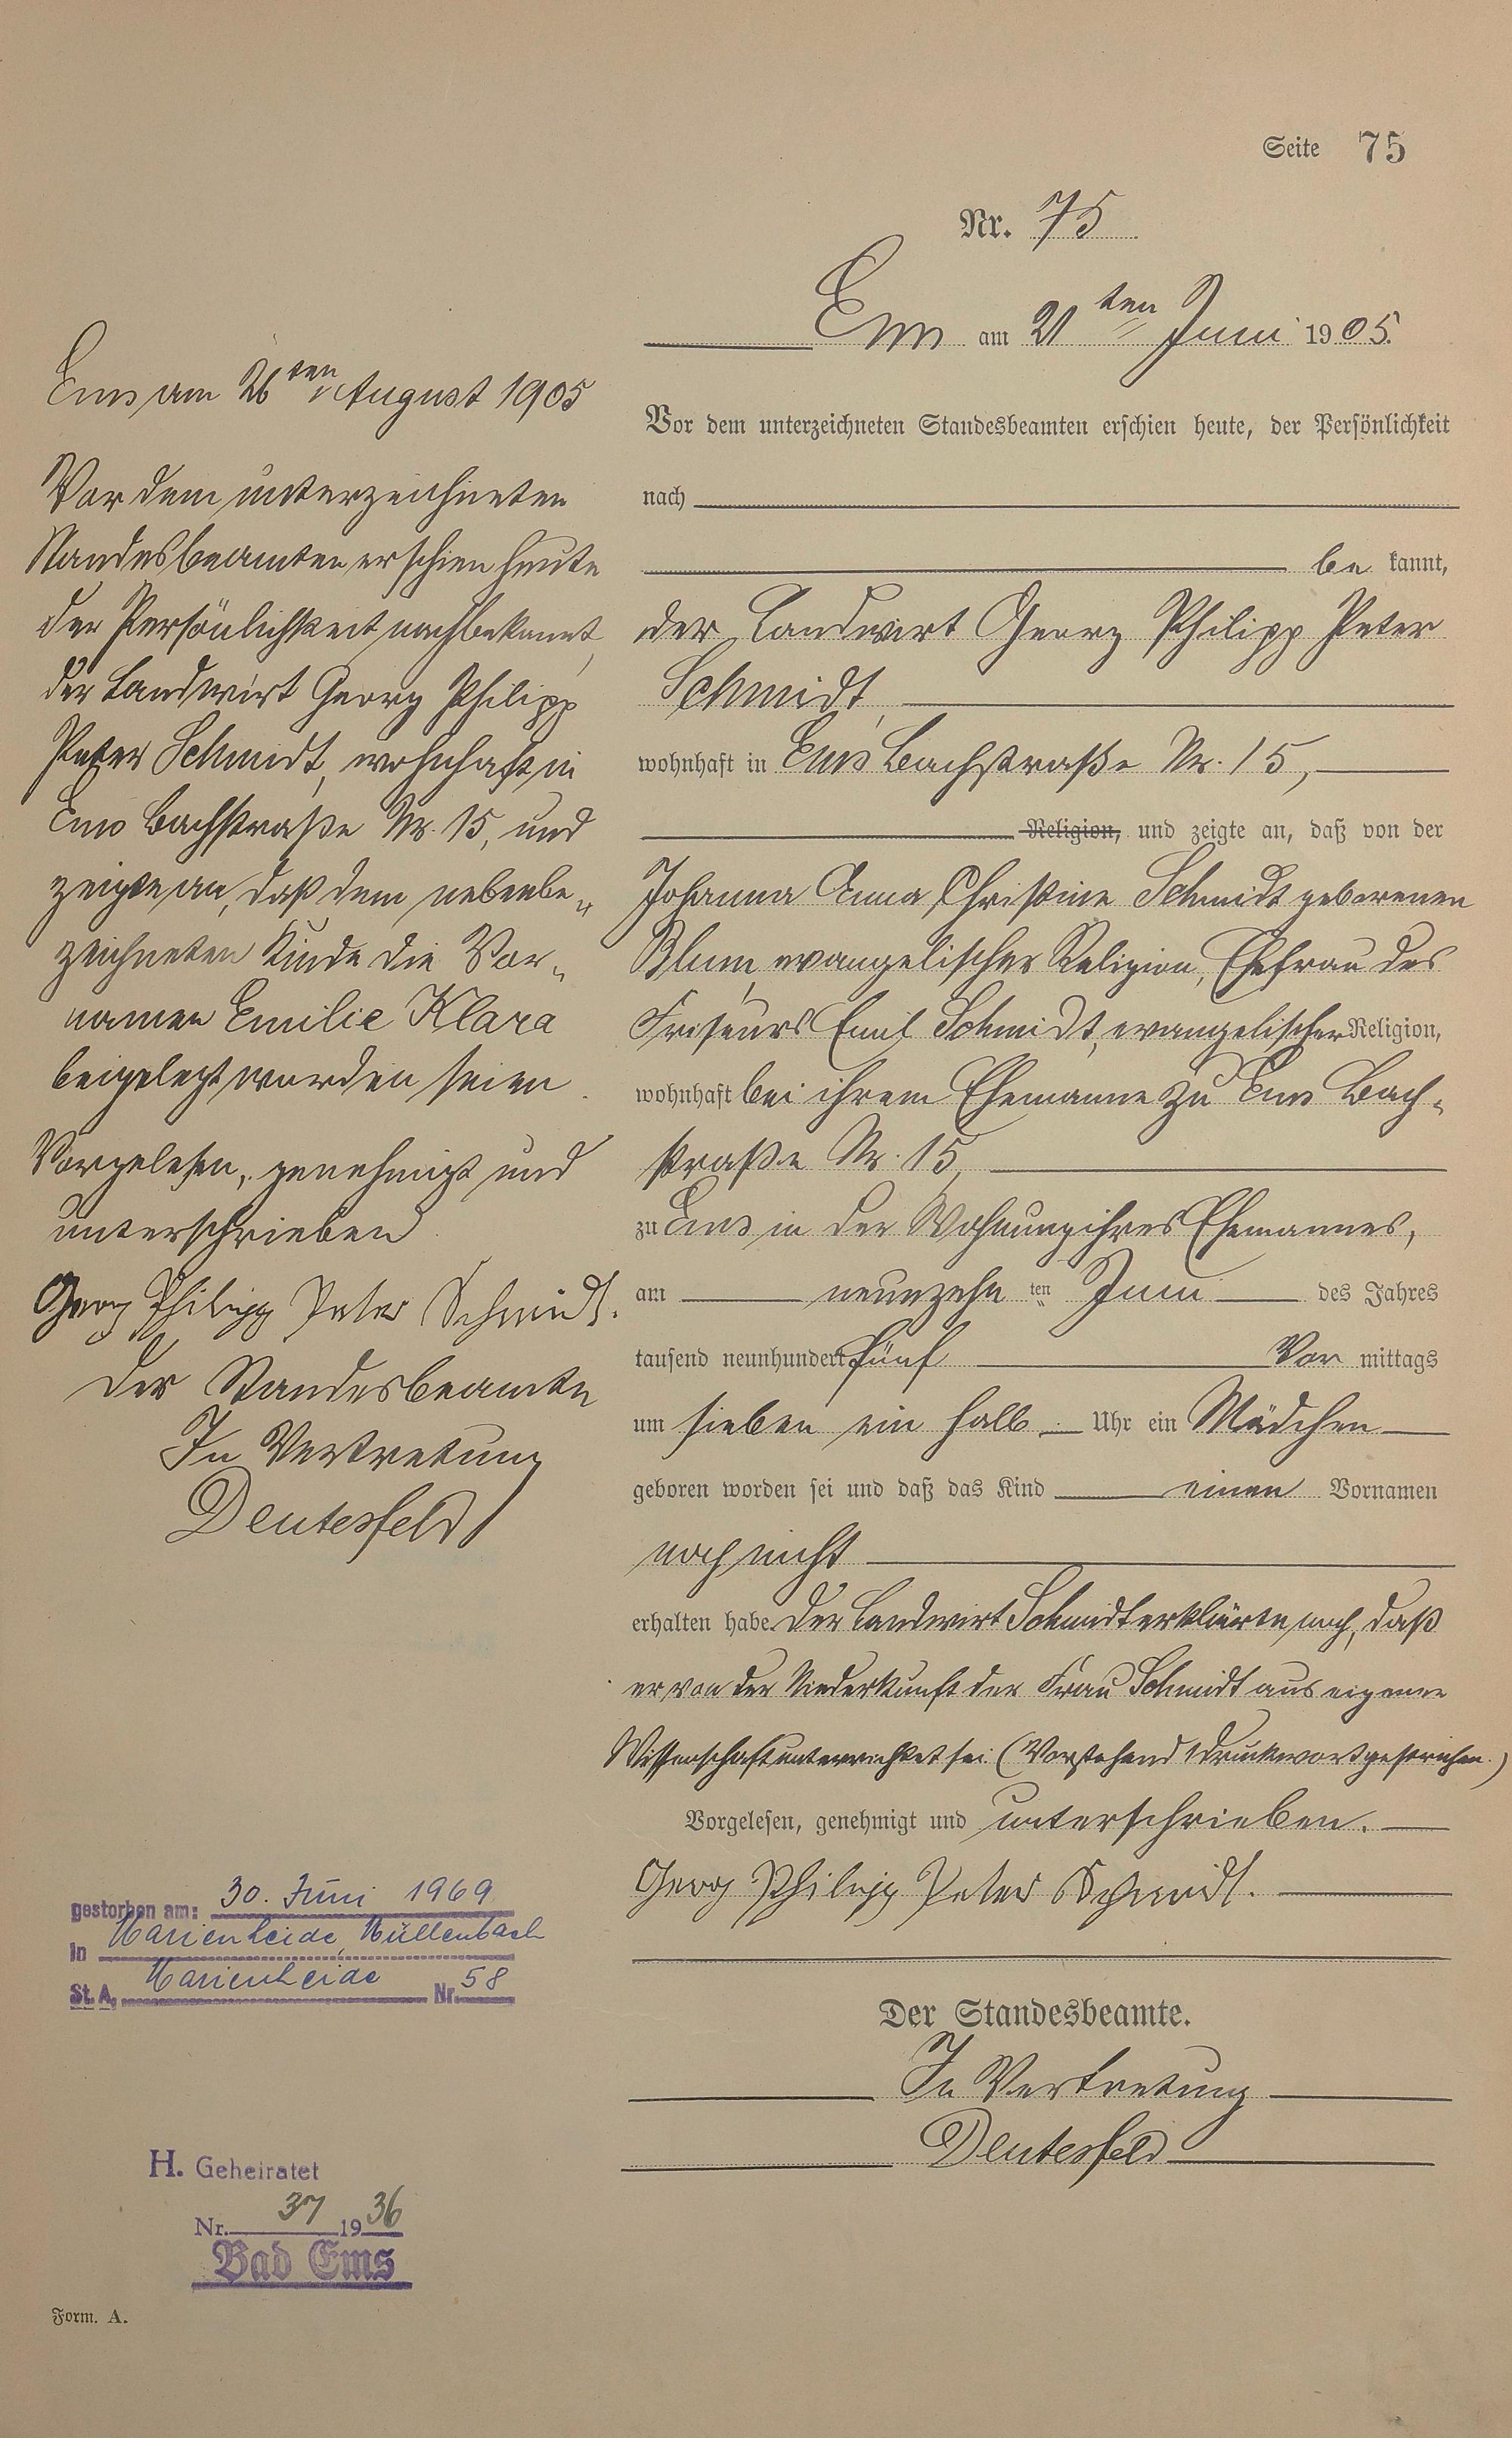 Seite 75
Nr. 75
Ems am 21ten Juni 1905.
Vor dem unterzeichneten Standesbeamten erschien heute, der Persönlichkeit
nach
be kannt,
der Landwirt Georg Philipp Peter
Schmidt,
wohnhaft in Ems Bachstraße Nr. 15,
Religion, und zeigte an, daß von der
Johanna Anna Christine Schmidt geborenen
Blum, evangelischer Religion, Ehefrau des
Friseurs Emil Schmidt, evangelischer Religion,
wohnhaft bei ihrem Ehemanne zu Ems Bach-
straße Nr. 15,
zu Ems in der Wohnung ihres Ehemannes,
am neunzehn ten Juni des Jahres
tausend neunhundert fünf Vor mittags
um sieben ein halb Uhr ein Mädchen
geboren worden sei und daß das Kind einen Vornamen
noch nicht
erhalten habe. Der Landwirt Schmidt erklärte noch, daß
er von der Niederkunft der Frau Schmidt aus eigener
Wissenschaft unterrichtet sei. (Vorstehend 1 Druckwort gestrichen.)
Vorgelesen, genehmigt und unterschrieben.
Georg Philipp Peter Schmidt.
Der Standesbeamte.
In Vertretung
Deutesfeld
Ems am 26ten August 1905
Vor dem unterzeichneten
Standesbeamten erschien heute
der Persönlichkeit nach bekannt,
der Landwirt Georg Philipp
Peter Schmidt, wohnhaft in
Ems Bachstraße Nr. 15, und
zeigte an, daß dem nebenbe-
zeichneten Kinde die Vor-
namen Emilie Klara
beigelegt worden seien.
Vorgelesen, genehmigt und
unterschrieben
Georg Philipp Peter Schmidt.
Der Standesbeamte
In Vertretung
Deutesfeld
gestorben am: 30. Juni 1969
in Marienheide, Müllenbach
St. A. Marienheide Nr. 58
H. Geheiratet
Nr. 37 1936
Bad Ems
Form. A.